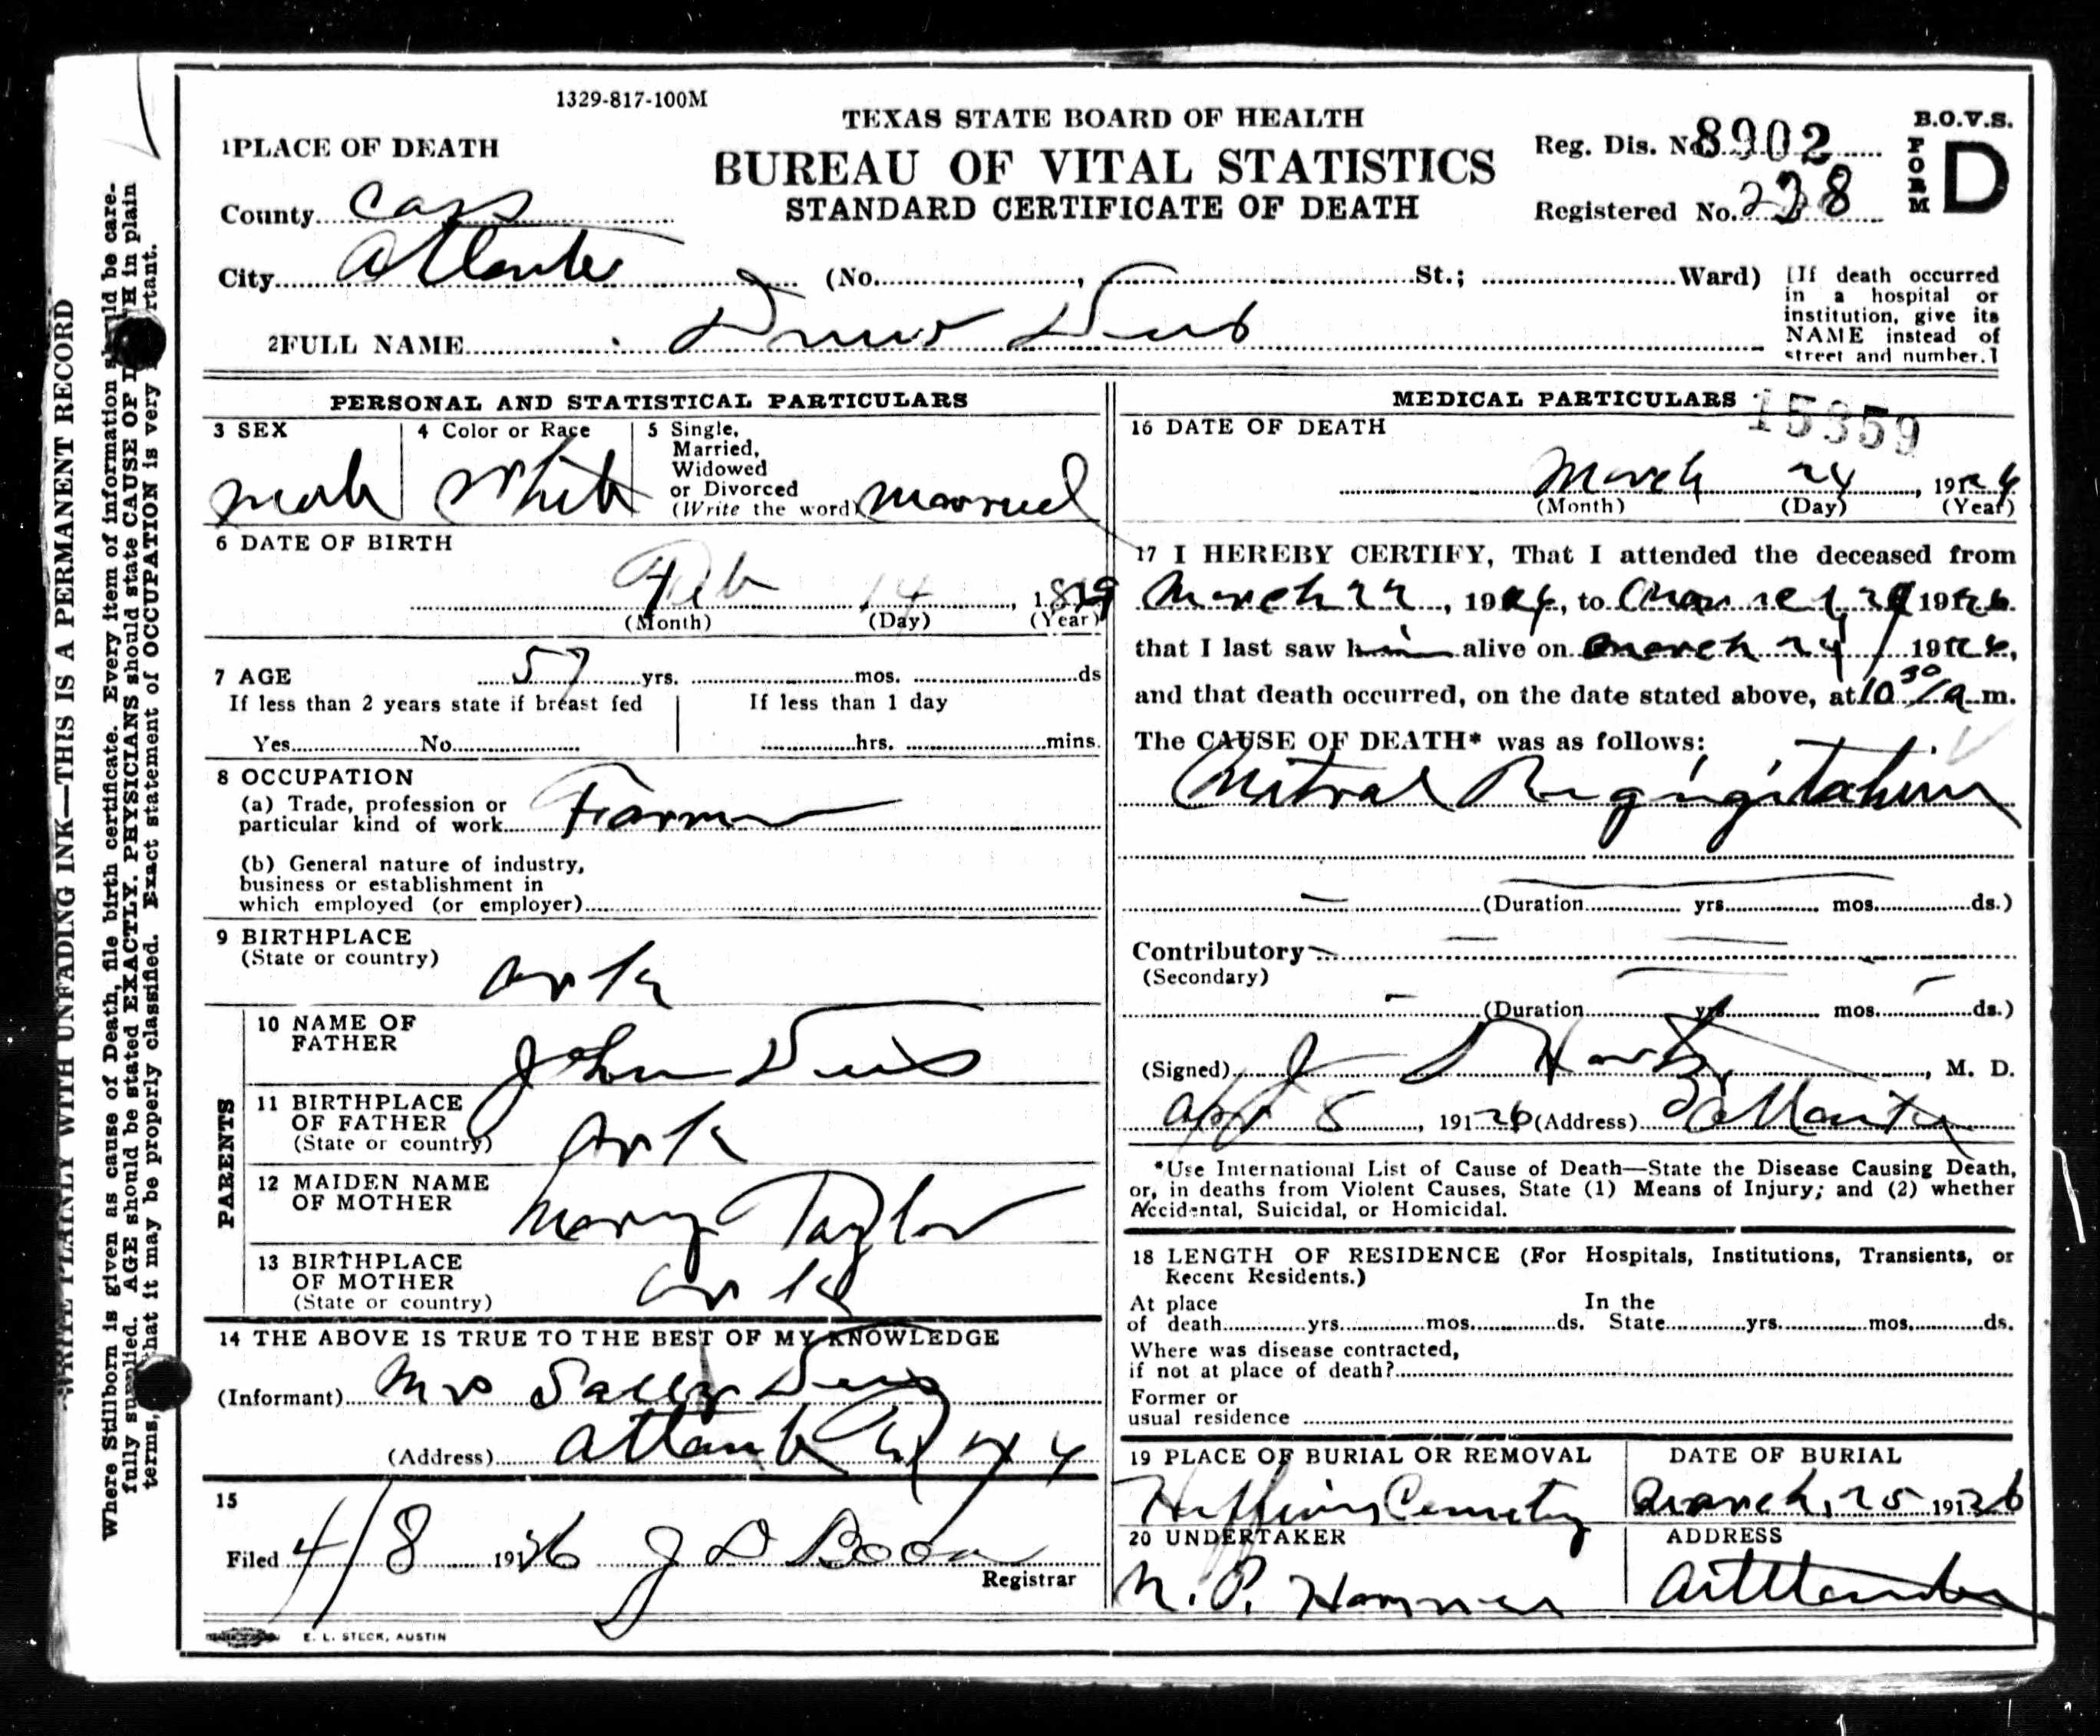 1329-817-100M
TEXAS STATE BOARD OF HEALTH
BUREAU OF VITAL STATISTICS
STANDARD CERTIFICATE OF DEATH
Reg. Dis. No. 8902
Registered No. 238
B.O.V.S.
FORM D
1 PLACE OF DEATH
County Cass
City Atlanta (No. , St.; Ward)
[If death occurred
in a hospital or
institution, give its
NAME instead of
street and number.]
2 FULL NAME
PERSONAL AND STATISTICAL PARTICULARS
3 SEX
male
4 Color or Race
White
5 Single,
Married,
Widowed
or Divorced
(Write the word) married
6 DATE OF BIRTH
Feb 14, 18
(Month) (Day) (Year)
7 AGE 57 yrs. mos. ds
If less than 2 years state if breast fed
Yes No
If less than 1 day
hrs. mins.
8 OCCUPATION
(a) Trade, profession or
particular kind of work Farmer
(b) General nature of industry,
business or establishment in
which employed (or employer)
9 BIRTHPLACE
(State or country)
Ark
PARENTS
10 NAME OF
FATHER
John
11 BIRTHPLACE
OF FATHER
(State or country)
Ark
12 MAIDEN NAME
OF MOTHER
Mary Taylor
13 BIRTHPLACE
OF MOTHER
(State or country)
Ark
14 THE ABOVE IS TRUE TO THE BEST OF MY KNOWLEDGE
(Informant) Mrs Sally
(Address) Atlanta
15
Filed 4/8 1926
Registrar
E. L. STECK, AUSTIN
MEDICAL PARTICULARS
15359
16 DATE OF DEATH
March 24, 1926
(Month) (Day) (Year)
17 I HEREBY CERTIFY, That I attended the deceased from
March 22, 1926, to March 24 1926
that I last saw him alive on March 24 1926,
and that death occurred, on the date stated above, at 10 30 a m.
The CAUSE OF DEATH* was as follows:
Mitral Regurgitation
(Duration yrs. mos. ds.)
Contributory
(Secondary)
(Duration yrs. mos. ds.)
(Signed) J , M. D.
Apr 5, 1926 (Address) Atlanta
*Use International List of Cause of Death—State the Disease Causing Death,
or, in deaths from Violent Causes, State (1) Means of Injury; and (2) whether
Accidental, Suicidal, or Homicidal.
18 LENGTH OF RESIDENCE (For Hospitals, Institutions, Transients, or
Recent Residents.)
At place
of death yrs. mos. ds.
In the
State yrs. mos. ds.
Where was disease contracted,
if not at place of death?
Former or
usual residence
19 PLACE OF BURIAL OR REMOVAL
Cemetery
DATE OF BURIAL
March, 25 1926
20 UNDERTAKER
ADDRESS
Atlanta
WRITE PLAINLY WITH UNFADING INK—THIS IS A PERMANENT RECORD
Where Stillborn is given as cause of Death, file birth certificate. Every item of information should be care-
fully supplied. AGE should be stated EXACTLY. PHYSICIANS should state CAUSE OF DEATH in plain
terms, that it may be properly classified. Exact statement of OCCUPATION is very important.